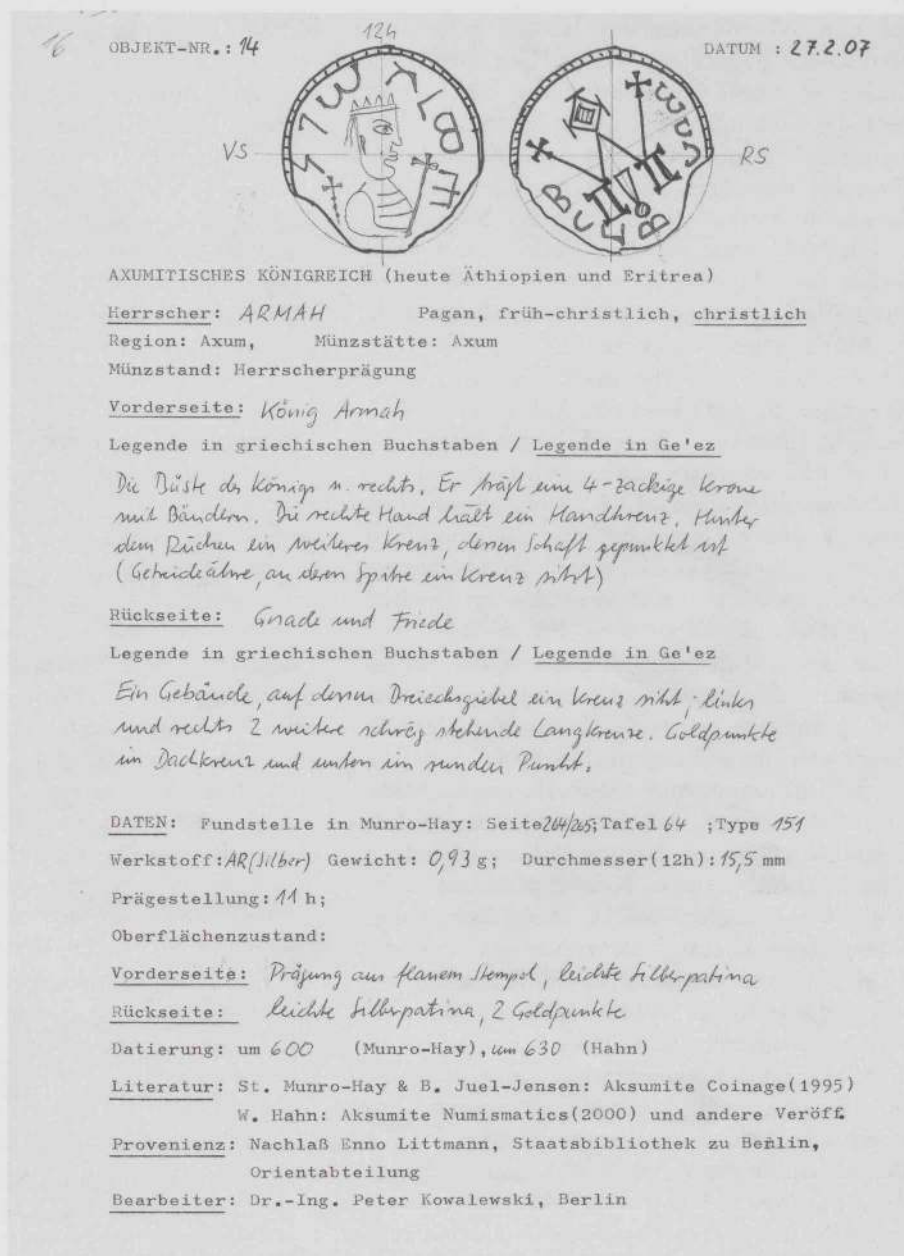 16
12h
OBJEKT-NR.: 14 DATUM : 27.2.07
VS RS
AXUMITISCHES KÖNIGREICH (heute Äthiopien und Eritrea)
Herrscher: ARMAH Pagan, früh-christlich, christlich
Region: Axum, Münzstätte: Axum
Münzstand: Herrscherprägung
Vorderseite: König Armah
Legende in griechischen Buchstaben / Legende in Ge'ez
Die Büste des Königs n. rechts. Er trägt eine 4-zackige Krone
mit Bändern. Die rechte Hand hält ein Handkreuz. Hinter
dem Rücken ein weiteres Kreuz, dessen Schaft gepunktet ist
(Getreideähre, an deren Spitze ein Kreuz sitzt)
Rückseite: Gnade und Friede
Legende in griechischen Buchstaben / Legende in Ge'ez
Ein Gebäude, auf dessen Dreiecksgiebel ein Kreuz sitzt; links
und rechts 2 weitere schräg stehende Langkreuze. Goldpunkte
im Dachkreuz und unten im runden Punkt.
DATEN: Fundstelle in Munro-Hay: Seite 264/265; Tafel 64 ; Type 151
Werkstoff: AR (Silber) Gewicht: 0,93 g; Durchmesser(12h): 15,5 mm
Prägestellung: 11 h;
Oberflächenzustand:
Vorderseite: Prägung aus flauem Stempel, leichte Silberpatina
Rückseite: leichte Silberpatina, 2 Goldpunkte
Datierung: um 600 (Munro-Hay), um 630 (Hahn)
Literatur: St. Munro-Hay & B. Juel-Jensen: Aksumite Coinage(1995)
W. Hahn: Aksumite Numismatics(2000) und andere Veröff.
Provenienz: Nachlaß Enno Littmann, Staatsbibliothek zu Berlin,
Orientabteilung
Bearbeiter: Dr.-Ing. Peter Kowalewski, Berlin